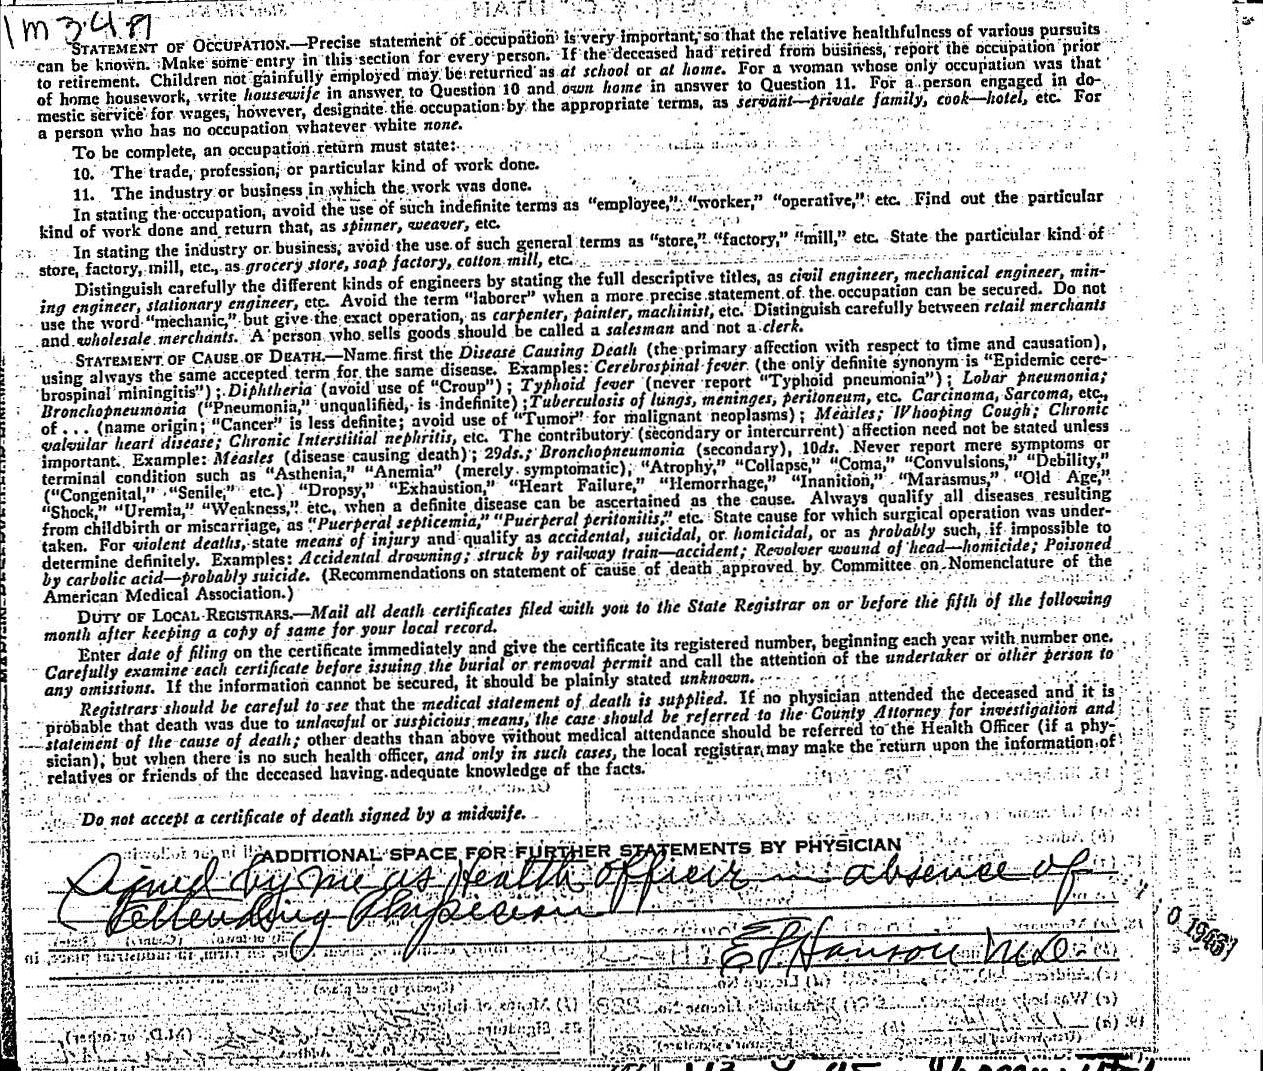 1m 3 4 81
STATEMENT OF OCCUPATION.—Precise statement of occupation is very important, so that the relative healthfulness of various pursuits
can be known. Make some entry in this section for every person. If the deceased had retired from business, report the occupation prior
to retirement. Children not gainfully employed may be returned as at school or at home. For a woman whose only occupation was that
of home housework, write housewife in answer to Question 10 and own home in answer to Question 11. For a person engaged in do-
mestic service for wages, however, designate the occupation by the appropriate terms, as servant—private family, cook—hotel, etc. For
a person who has no occupation whatever white none.
To be complete, an occupation return must state:
10. The trade, profession, or particular kind of work done.
11. The industry or business in which the work was done.
In stating the occupation, avoid the use of such indefinite terms as "employee," "worker," "operative," etc. Find out the particular
kind of work done and return that, as spinner, weaver, etc.
In stating the industry or business, avoid the use of such general terms as "store," "factory," "mill," etc. State the particular kind of
store, factory, mill, etc., as grocery store, soap factory, cotton mill, etc.
Distinguish carefully the different kinds of engineers by stating the full descriptive titles, as civil engineer, mechanical engineer, min-
ing engineer, stationary engineer, etc. Avoid the term "laborer" when a more precise statement of the occupation can be secured. Do not
use the word "mechanic," but give the exact operation, as carpenter, painter, machinist, etc. Distinguish carefully between retail merchants
and wholesale merchants. A person who sells goods should be called a salesman and not a clerk.
STATEMENT OF CAUSE OF DEATH.—Name first the Disease Causing Death (the primary affection with respect to time and causation),
using always the same accepted term for the same disease. Examples: Cerebrospinal fever (the only definite synonym is "Epidemic cere-
brospinal miningitis"); Diphtheria (avoid use of "Croup"); Typhoid fever (never report "Typhoid pneumonia"); Lobar pneumonia;
Bronchopneumonia ("Pneumonia," unqualified, is indefinite); Tuberculosis of lungs, meninges, peritoneum, etc. Carcinoma, Sarcoma, etc.,
of . . . (name origin; "Cancer" is less definite; avoid use of "Tumor" for malignant neoplasms); Measles; Whooping Cough; Chronic
valvular heart disease; Chronic Interstitial nephritis, etc. The contributory (secondary or intercurrent) affection need not be stated unless
important. Example: Measles (disease causing death); 29ds.; Bronchopneumonia (secondary), 10ds. Never report mere symptoms or
terminal condition such as "Asthenia," "Anemia" (merely symptomatic), "Atrophy," "Collapse," "Coma," "Convulsions," "Debility,"
("Congenital," "Senile," etc.) "Dropsy," "Exhaustion," "Heart Failure," "Hemorrhage," "Inanition," "Marasmus," "Old Age,"
"Shock," "Uremia," "Weakness," etc., when a definite disease can be ascertained as the cause. Always qualify all diseases resulting
from childbirth or miscarriage, as "Puerperal septicemia," "Puerperal peritonitis," etc. State cause for which surgical operation was under-
taken. For violent deaths, state means of injury and qualify as accidental, suicidal, or homicidal, or as probably such, if impossible to
determine definitely. Examples: Accidental drowning; struck by railway train—accident; Revolver wound of head—homicide; Poisoned
by carbolic acid—probably suicide. (Recommendations on statement of cause of death approved by Committee on Nomenclature of the
American Medical Association.)
DUTY OF LOCAL REGISTRARS.—Mail all death certificates filed with you to the State Registrar on or before the fifth of the following
month after keeping a copy of same for your local record.
Enter date of filing on the certificate immediately and give the certificate its registered number, beginning each year with number one.
Carefully examine each certificate before issuing the burial or removal permit and call the attention of the undertaker or other person to
any omissions. If the information cannot be secured, it should be plainly stated unknown.
Registrars should be careful to see that the medical statement of death is supplied. If no physician attended the deceased and it is
probable that death was due to unlawful or suspicious means, the case should be referred to the County Attorney for investigation and
statement of the cause of death; other deaths than above without medical attendance should be referred to the Health Officer (if a phy-
sician), but when there is no such health officer, and only in such cases, the local registrar may make the return upon the information of
relatives or friends of the deceased having adequate knowledge of the facts.
Do not accept a certificate of death signed by a midwife.
ADDITIONAL SPACE FOR FURTHER STATEMENTS BY PHYSICIAN
Signed by me as Health officer in absence of
Attending Physician
E P Hanson M.D.